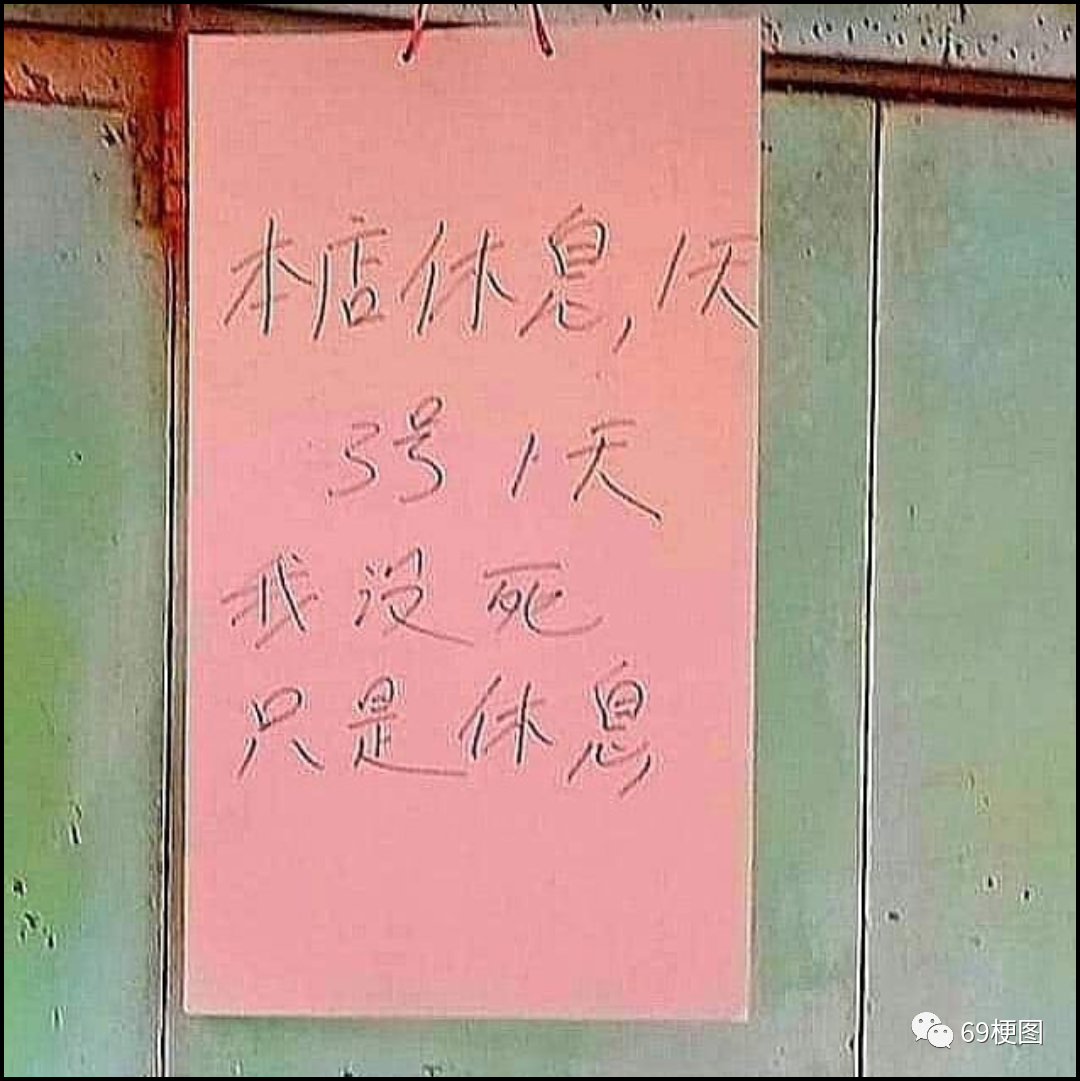 本店休息,1天
3号1天
我没死
只是休息
69梗图